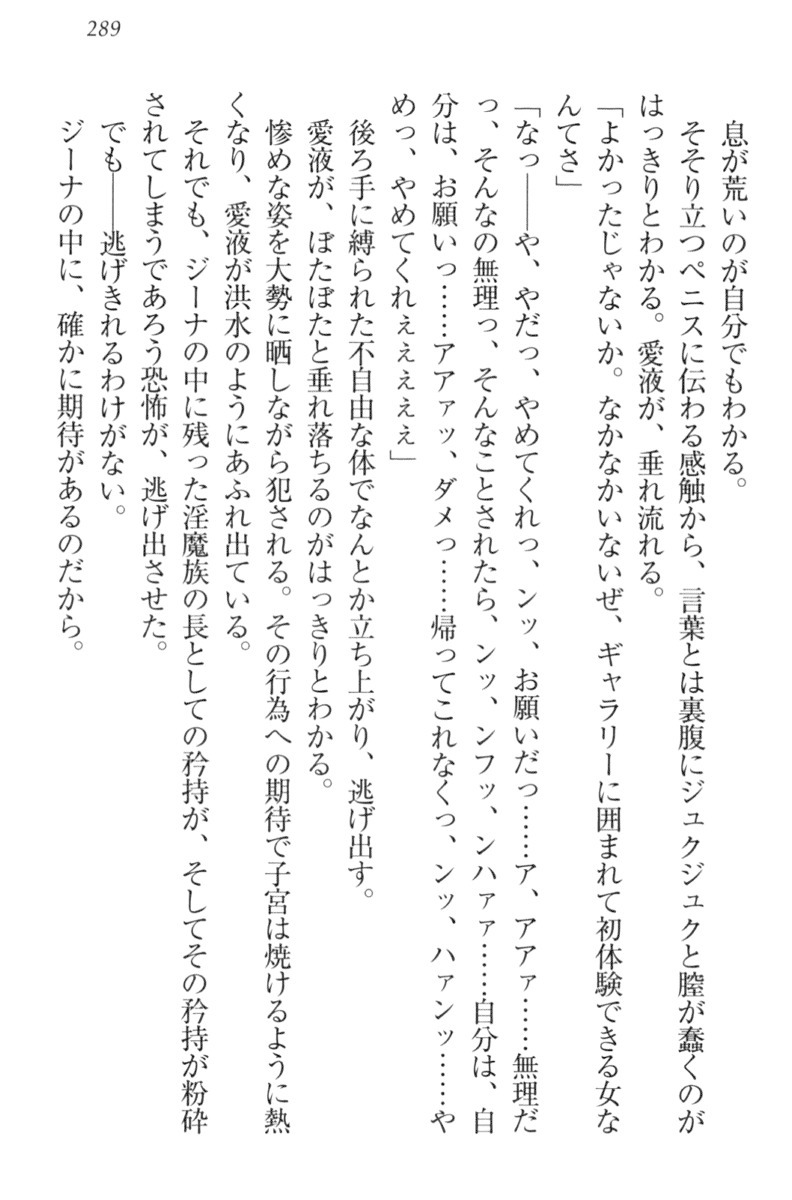 289
息が荒いのが自分でもわかる。
そそり立つペニスに伝わる感触から、言葉とは裏腹にジュクジュクと膣が蠢くのが
はっきりとわかる。愛液が、垂れ流れる。
「よかったじゃないか。なかなかいないぜ、ギャラリーに囲まれて初体験できる女な
んてさ」
「なっ――や、やだっ、やめてくれっ、ンッ、お願いだっ……ア、アアァ……無理だ
っ、そんなの無理っ、そんなことされたら、ンッ、ンフッ、ンハァァ……自分は、自
分は、お願いっ……アアァッ、ダメっ……帰ってこれなくっ、ンッ、ハァンッ……や
めっ、やめてくれぇぇぇぇぇ」
後ろ手に縛られた不自由な体でなんとか立ち上がり、逃げ出す。
愛液が、ぼたぼたと垂れ落ちるのがはっきりとわかる。
惨めな姿を大勢に晒しながら犯される。その行為への期待で子宮は焼けるように熱
くなり、愛液が洪水のようにあふれ出ている。
それでも、ジーナの中に残った淫魔族の長としての矜持が、そしてその矜持が粉砕
されてしまうであろう恐怖が、逃げ出させた。
でも――逃げきれるわけがない。
ジーナの中に、確かに期待があるのだから。